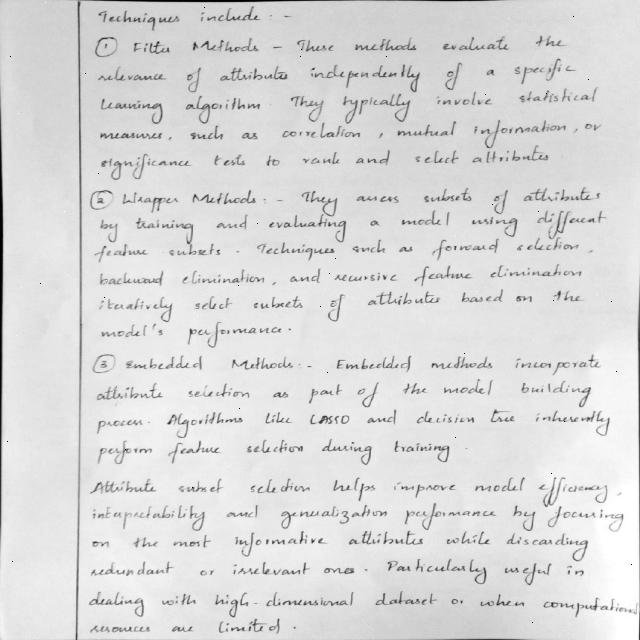 Techniques include: -
① Filter Methods - These methods evaluate the
relevance of attributes independently of a specific
learning algorithm. They typically involve statistical
measures, such as correlation, mutual information, or
significance tests to rank and select attributes
② Wrapper Methods: - They assess subsets of attributes
by training and evaluating a model using different
feature subsets. Techniques such as forward selection,
backward elimination, and recursive feature elimination
iteratively select subsets of attributes based on the
model's performance.
③ Embedded Methods: - Embedded methods incorporate
attribute selection as part of the model building
process. Algorithms like LASSO and decision tree inherently
perform feature selection during training.
Attribute subset selection helps improve model efficiency,
interpretability and generalization performance by focusing
on the most informative attributes while discarding
redundant or irrelevant ones. Particularly useful in
dealing with high-dimensional dataset or when computational
resources are limited.